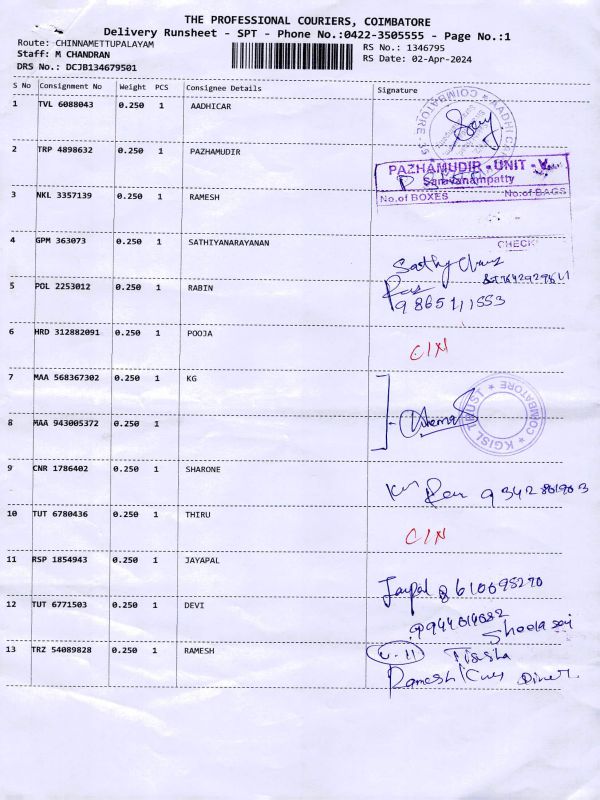 THE PROFESSIONAL COURIERS, COIMBATORE
Delivery Runsheet - SPT - Phone No.:0422-3505555 - Page No.:1
Route: CHINNAMETTUPALAYAM
Staff: M CHANDRAN
DRS No.: DCJB134679501
RS No.: 1346795
RS Date: 02-Apr-2024
S No Consignment No Weight PCS Consignee Details Signature
1 TVL 6088043 0.250 1 AADHICAR
2 TRP 4898632 0.250 1 PAZHAMUDIR
PAZHAMUDIR - UNIT - V
Saravanampatty
No.of BOXES No.of BAGS
3 NKL 3357139 0.250 1 RAMESH
4 GPM 363073 0.250 1 SATHIYANARAYANAN
CHECK
5 POL 2253012 0.250 1 RABIN
6 HRD 312882091 0.250 1 POOJA
C/N
7 MAA 568367302 0.250 1 KG
KGISL TRUST * COIMBATORE *
8 MAA 943005372 0.250 1
9 CNR 1786402 0.250 1 SHARONE
10 TUT 6780436 0.250 1 THIRU
C/N
11 RSP 1854943 0.250 1 JAYAPAL
Jaypal 8610695270
12 TUT 6771503 0.250 1 DEVI
13 TRZ 54089828 0.250 1 RAMESH
Ramesh